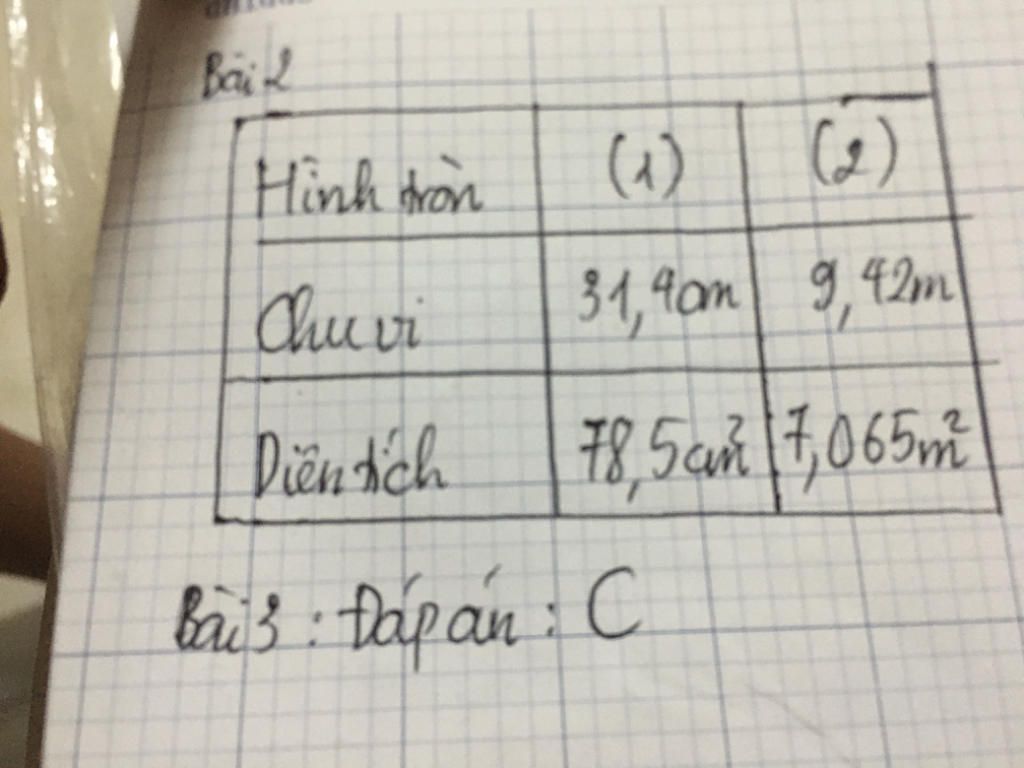 Bài 2
Hình tròn (1) (2)
Chu vi 31,4cm 9,42m
Diên tích 78,5cm² 7,065m²
Bài 3 : Đáp án : C